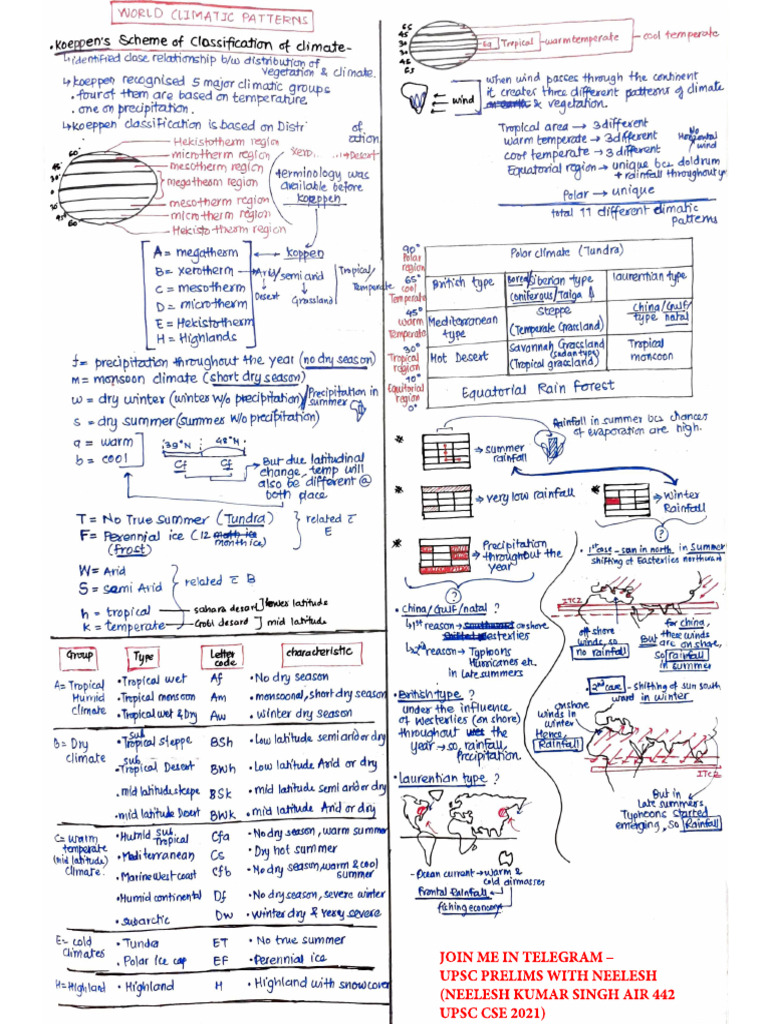 WORLD CLIMATIC PATTERNS
• Koeppen's Scheme of Classification of climate-
↳ identified close relationship b/w distribution of
vegetation & climate.
↳ Koeppen recognised 5 major climatic groups
• four of them are based on temperature
• one on precipitation.
↳ Koeppen classification is based on Distri of
ation
Hekistotherm region
microtherm region
mesotherm region
megatherm region
mesotherm region
microtherm region
Hekistotherm region
xero → Desert
terminology was
available before
Koeppen
A = megatherm ← Koppen
B = xerotherm → Arid/semi arid Tropical/
Temperate
Desert Grassland
C = mesotherm
D = microtherm
E = Hekistotherm
H = Highlands
f = precipitation throughout the year (no dry season)
m = monsoon climate (short dry season)
w = dry winter (winter w/o precipitation) / Precipitation in
summer
s = dry summer (summer w/o precipitation)
a = warm
b = cool
39°N 48°N
Cf Cf
But due latitudinal
change, temp will
also be different @
both place
T = No True summer (Tundra)
F = Perennial ice (12 month ice)
(frost)
related τ
E
W = Arid
S = semi Arid
related τ B
h = tropical — sahara desart lower latitude
k = temperate — Gobi desard mid latitude
Group Type Letter code characteristic
A = Tropical Humid climate
• Tropical wet Af • No dry season
• Tropical monsoon Am • monsoonal, short dry season
• Tropical wet & Dry Aw • winter dry season
B = Dry climate
• sub Tropical steppe BSh • Low latitude semi arid or dry
• sub Tropical Desert BWh • Low latitude Arid or dry
• mid latitude steppe BSk • mid latitude semi arid or dry
• mid latitude Desert BWk • mid latitude Arid or dry
C = warm temperate (mid latitude) climate.
• Humid sub Tropical Cfa • No dry season, warm summer
• Mediterranean Cs • Dry hot summer
• Marine west coast Cfb • No dry season, warm & cool summer
• Humid continental Df • No dry season, severe winter
• subarctic Dw • winter dry & very severe
E = cold climates
• Tundra ET • No true summer
• Polar Ice cap EF • Perennial ice
H = Highland • Highland H • Highland with snow cover
65
45
30
30
45
65
Eq Tropical — warm temperate — cool temperate
wind
when wind passes through the continent
it creates three different patterns of climate
& vegetation.
Tropical area → 3 different
warm temperate → 3 different
cool temperate → 3 different
No Horizontal wind
Equatorial region → unique bcz doldrum
+ rainfall throughout yr
Polar → unique
total 11 different climatic
patterns
90° Polar region
Polar climate (Tundra)
65° cool Temperate
British type
Boreal/Siberian type
(coniferous/Taiga)
laurentian type
45° warm Temperate
Mediterranean type
Steppe
(Temperate Grassland)
China/Gulf/
type natal
30° Tropical region
Hot Desert
Savannah Grassland
(sudan type)
(Tropical grassland)
Tropical
moncoon
10° Equitorial region
0°
Equatorial Rain Forest
Rainfall in summer bcz chances
of evaporation are high.
* → summer
rainfall
* → very low rainfall
* → winter
Rainfall
?
* → Precipitation
throughout the
year
?
• China/Gulf/natal ?
↳ 1st reason → onshore
easterlies
↳ 2nd reason → Typhoons
Hurricanes etc.
in late summers
• British type ?
under the influence
of westerlies (on shore)
throughout the
year → so, rainfall,
Precipitation
• Laurentian type ?
- Ocean current → warm &
cold airmasses
Frontal Rainfall
fishing economy
• 1st case – sun in north in summer
shifting of Easterlies northward
ITCZ
off shore
winds, so
no rainfall
for china,
But these winds
are on shore,
so rainfall
in summer
• 2nd case - shifting of sun south
ward in winter
onshore
winds in
winter
Hence,
Rainfall
ITCZ
But in
late summers,
Typhoons started
emerging, so Rainfall
JOIN ME IN TELEGRAM –
UPSC PRELIMS WITH NEELESH
(NEELESH KUMAR SINGH AIR 442
UPSC CSE 2021)